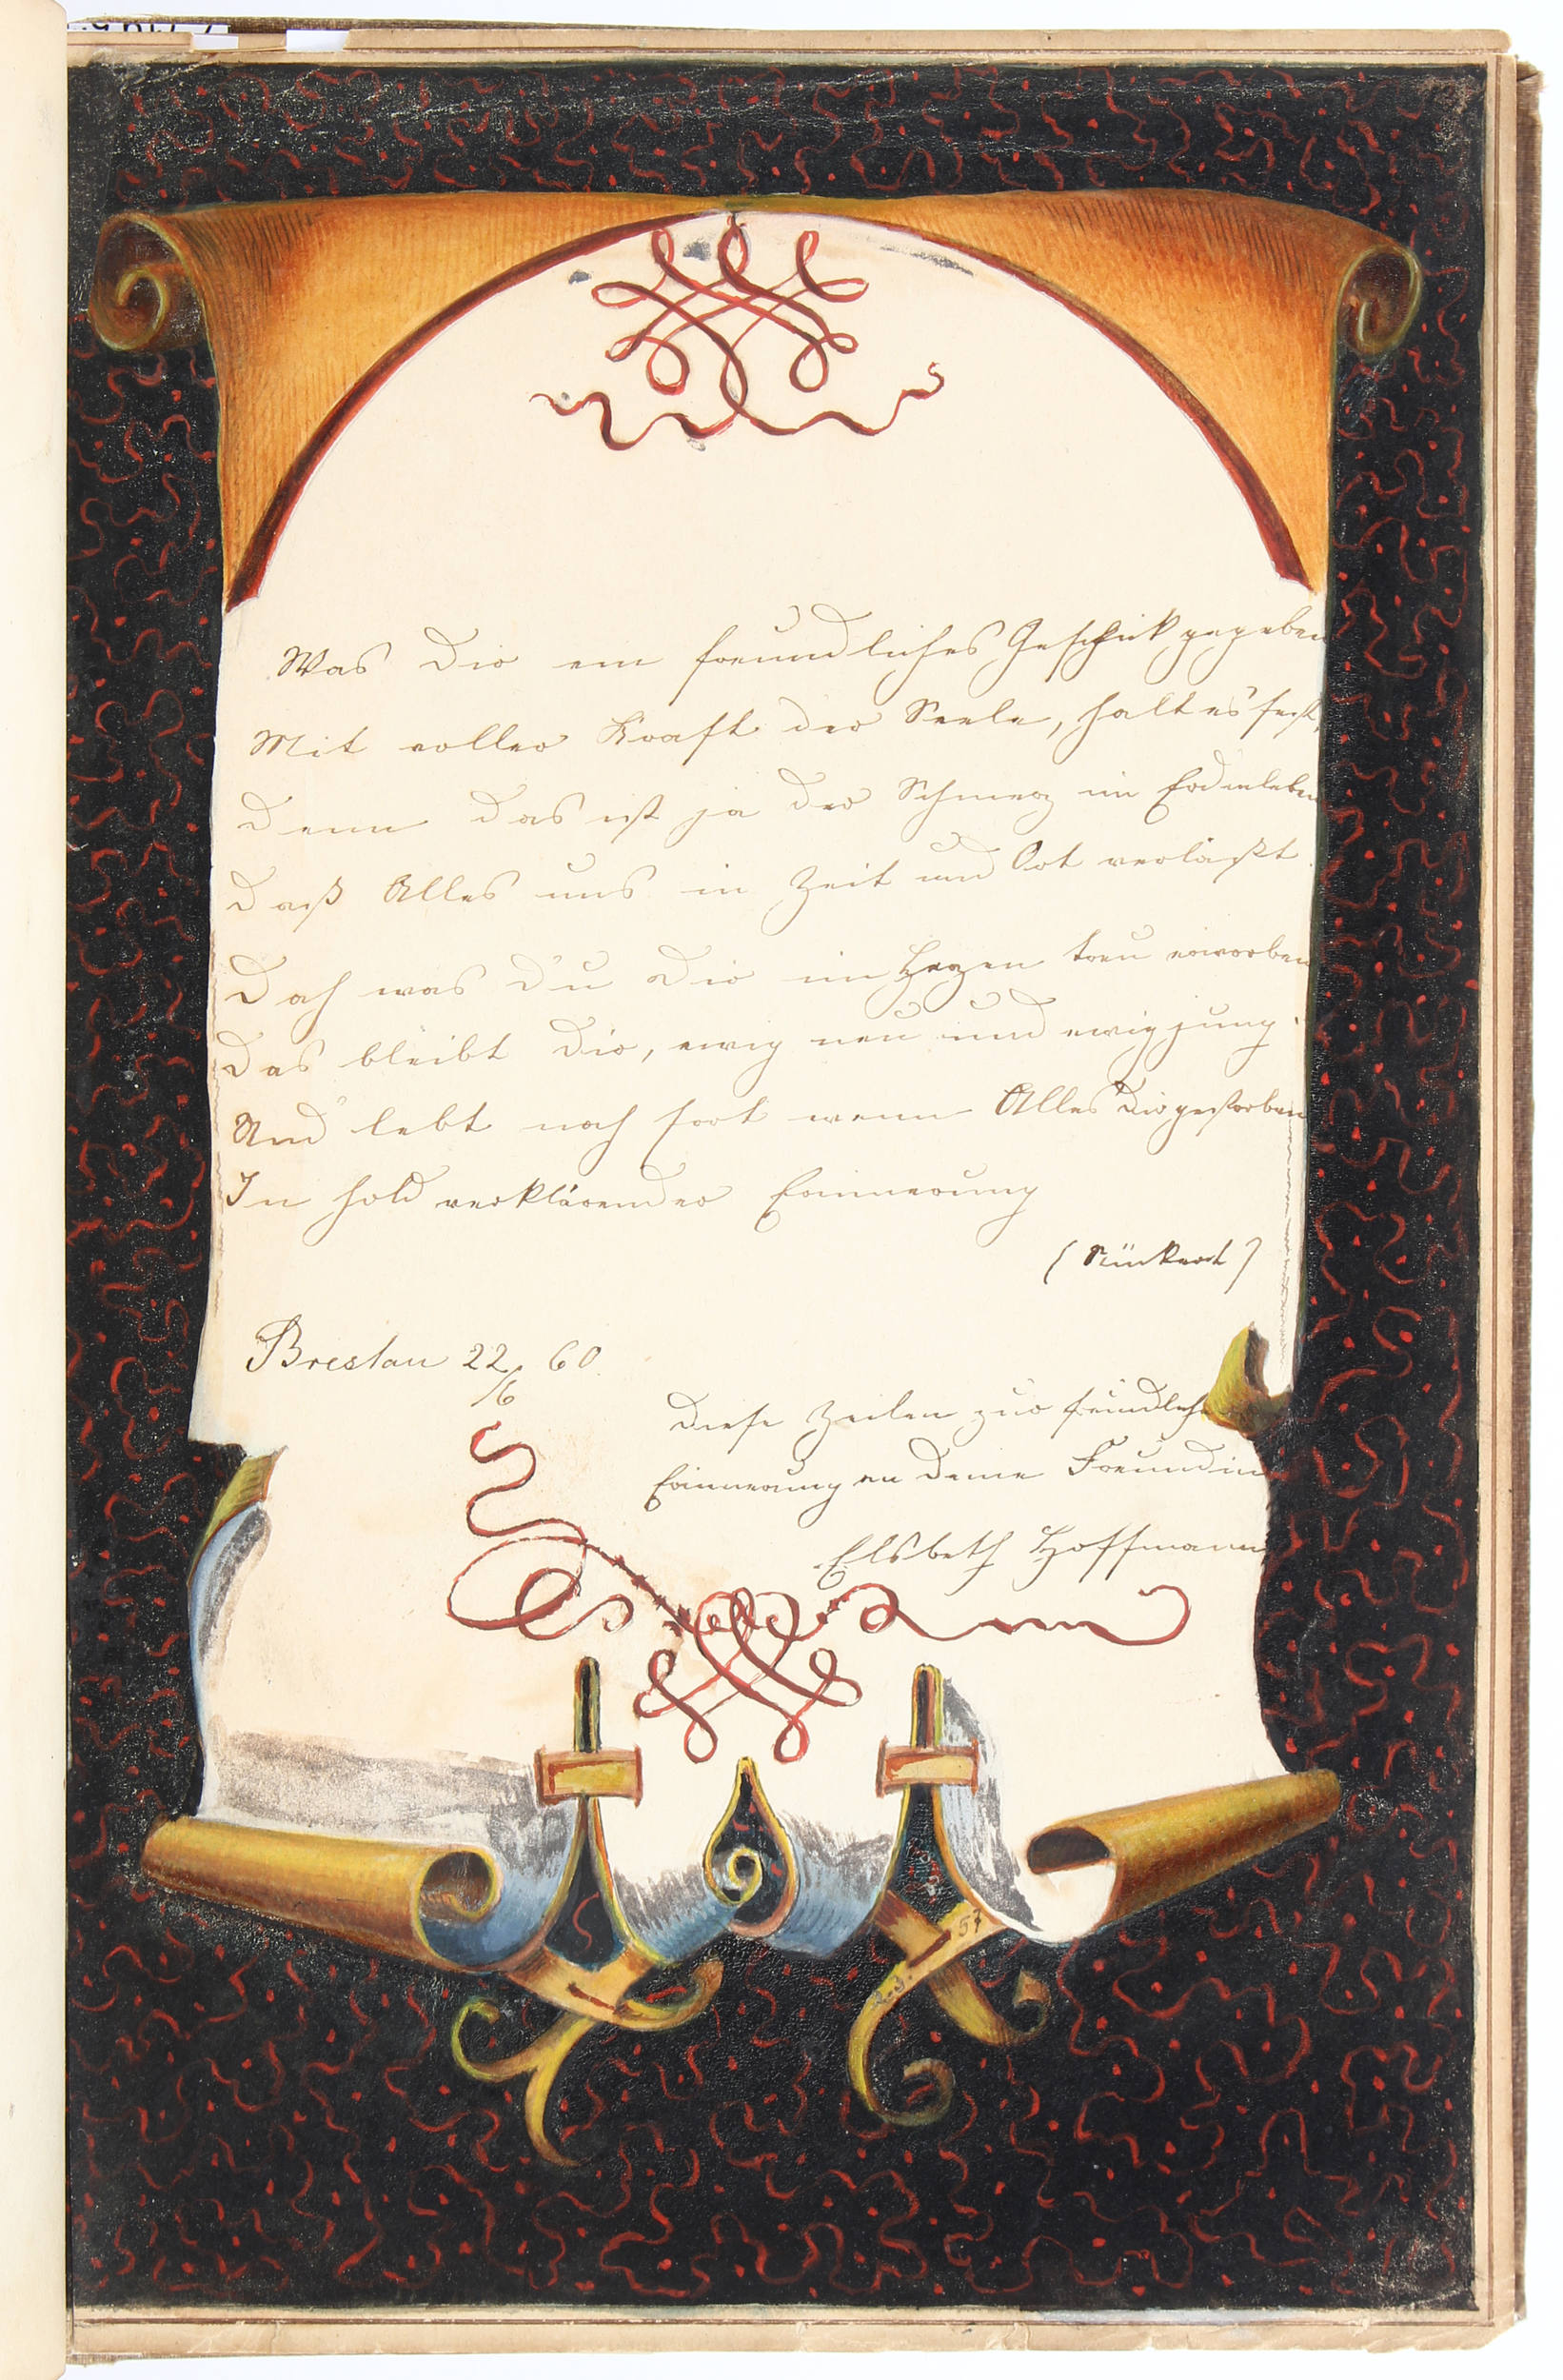 Was Dir ein freundliches Geschick gegeben
Mit voller Kraft der Seele, halt es fest,
Denn Das ist ja der Schmerz im Erdenleben
Daß Alles uns in Zeit und Ort verläßt.
Doch was Du Dir im Herzen treu erworben
Das bleibt Dir, ewig neu und ewig jung.
Und lebt noch fort wenn Alles Dir gestorben
In hold verklärender Erinnerung
(Rückert)
Breslau 22/6 60.
Diese Zeilen zur freundlich
Erinnerung an Deine Freundin
Elsbeth Hoffmann
57